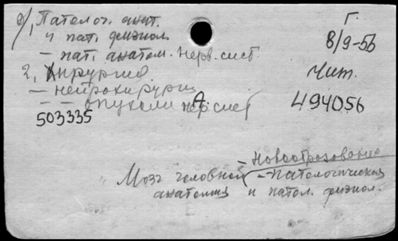 1, Патолог. анат. Г.
и пат. физиол. 8/9-56
- пат. анатом. нерв. сист Чит.
2, Хирургия
- нейрохирург
- - опухоли А. нер сист 494056
503335
- Новообразование
Мозг головной - патологическая
анатомия и патол. физиол.